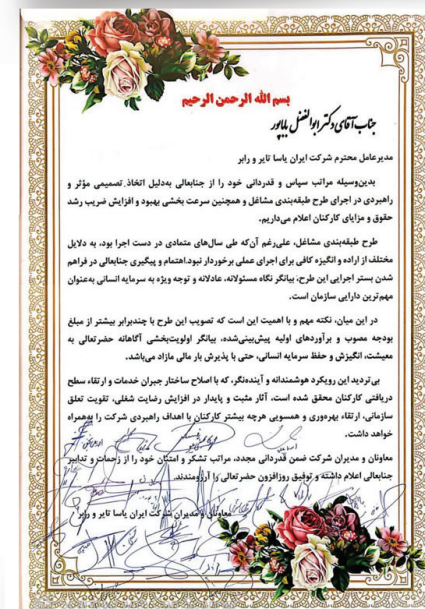 بسم الله الرحمن الرحیم
جناب آقای دکتر ابوالفضل باباپور
مدیرعامل محترم شرکت ایران یاسا تایر و رابر
بدین‌وسیله مراتب سپاس و قدردانی خود را از جنابعالی به‌دلیل اتخاذ تصمیمی مؤثر و
راهبردی در اجرای طرح طبقه‌بندی مشاغل و همچنین سرعت بخشی بهبود و افزایش ضریب رشد
حقوق و مزایای کارکنان اعلام می‌داریم.
طرح طبقه‌بندی مشاغل، علی‌رغم آن‌که طی سال‌های متمادی در دست اجرا بود، به دلایل
مختلف از اراده و انگیزه کافی برای اجرای عملی برخوردار نبود.اهتمام و پیگیری جنابعالی در فراهم
شدن بستر اجرایی این طرح، بیانگر نگاه مسئولانه، عادلانه و توجه ویژه به سرمایه انسانی به‌عنوان
مهم‌ترین دارایی سازمان است.
در این میان، نکته مهم و با اهمیت این است که تصویب این طرح با چندبرابر بیشتر از مبلغ
بودجه مصوب و برآوردهای اولیه پیش‌بینی‌شده، بیانگر اولویت‌بخشی آگاهانه حضرتعالی به
معیشت، انگیزش و حفظ سرمایه انسانی، حتی با پذیرش بار مالی مازاد می‌باشد.
بی‌تردید این رویکرد هوشمندانه و آینده‌نگر، که با اصلاح ساختار جبران خدمات و ارتقاء سطح
دریافتی کارکنان محقق شده است، آثار مثبت و پایدار در افزایش رضایت شغلی، تقویت تعلق
سازمانی، ارتقاء بهره‌وری و همسویی هرچه بیشتر کارکنان با اهداف راهبردی شرکت را به‌همراه
خواهد داشت.
معاونان و مدیران شرکت ضمن قدردانی مجدد، مراتب تشکر و امتنان خود را از زحمات و تدابیر
جنابعالی اعلام داشته و توفیق روزافزون حضرتعالی را آرزومندند.
معاونان و مدیران شرکت ایران یاسا تایر و رابر